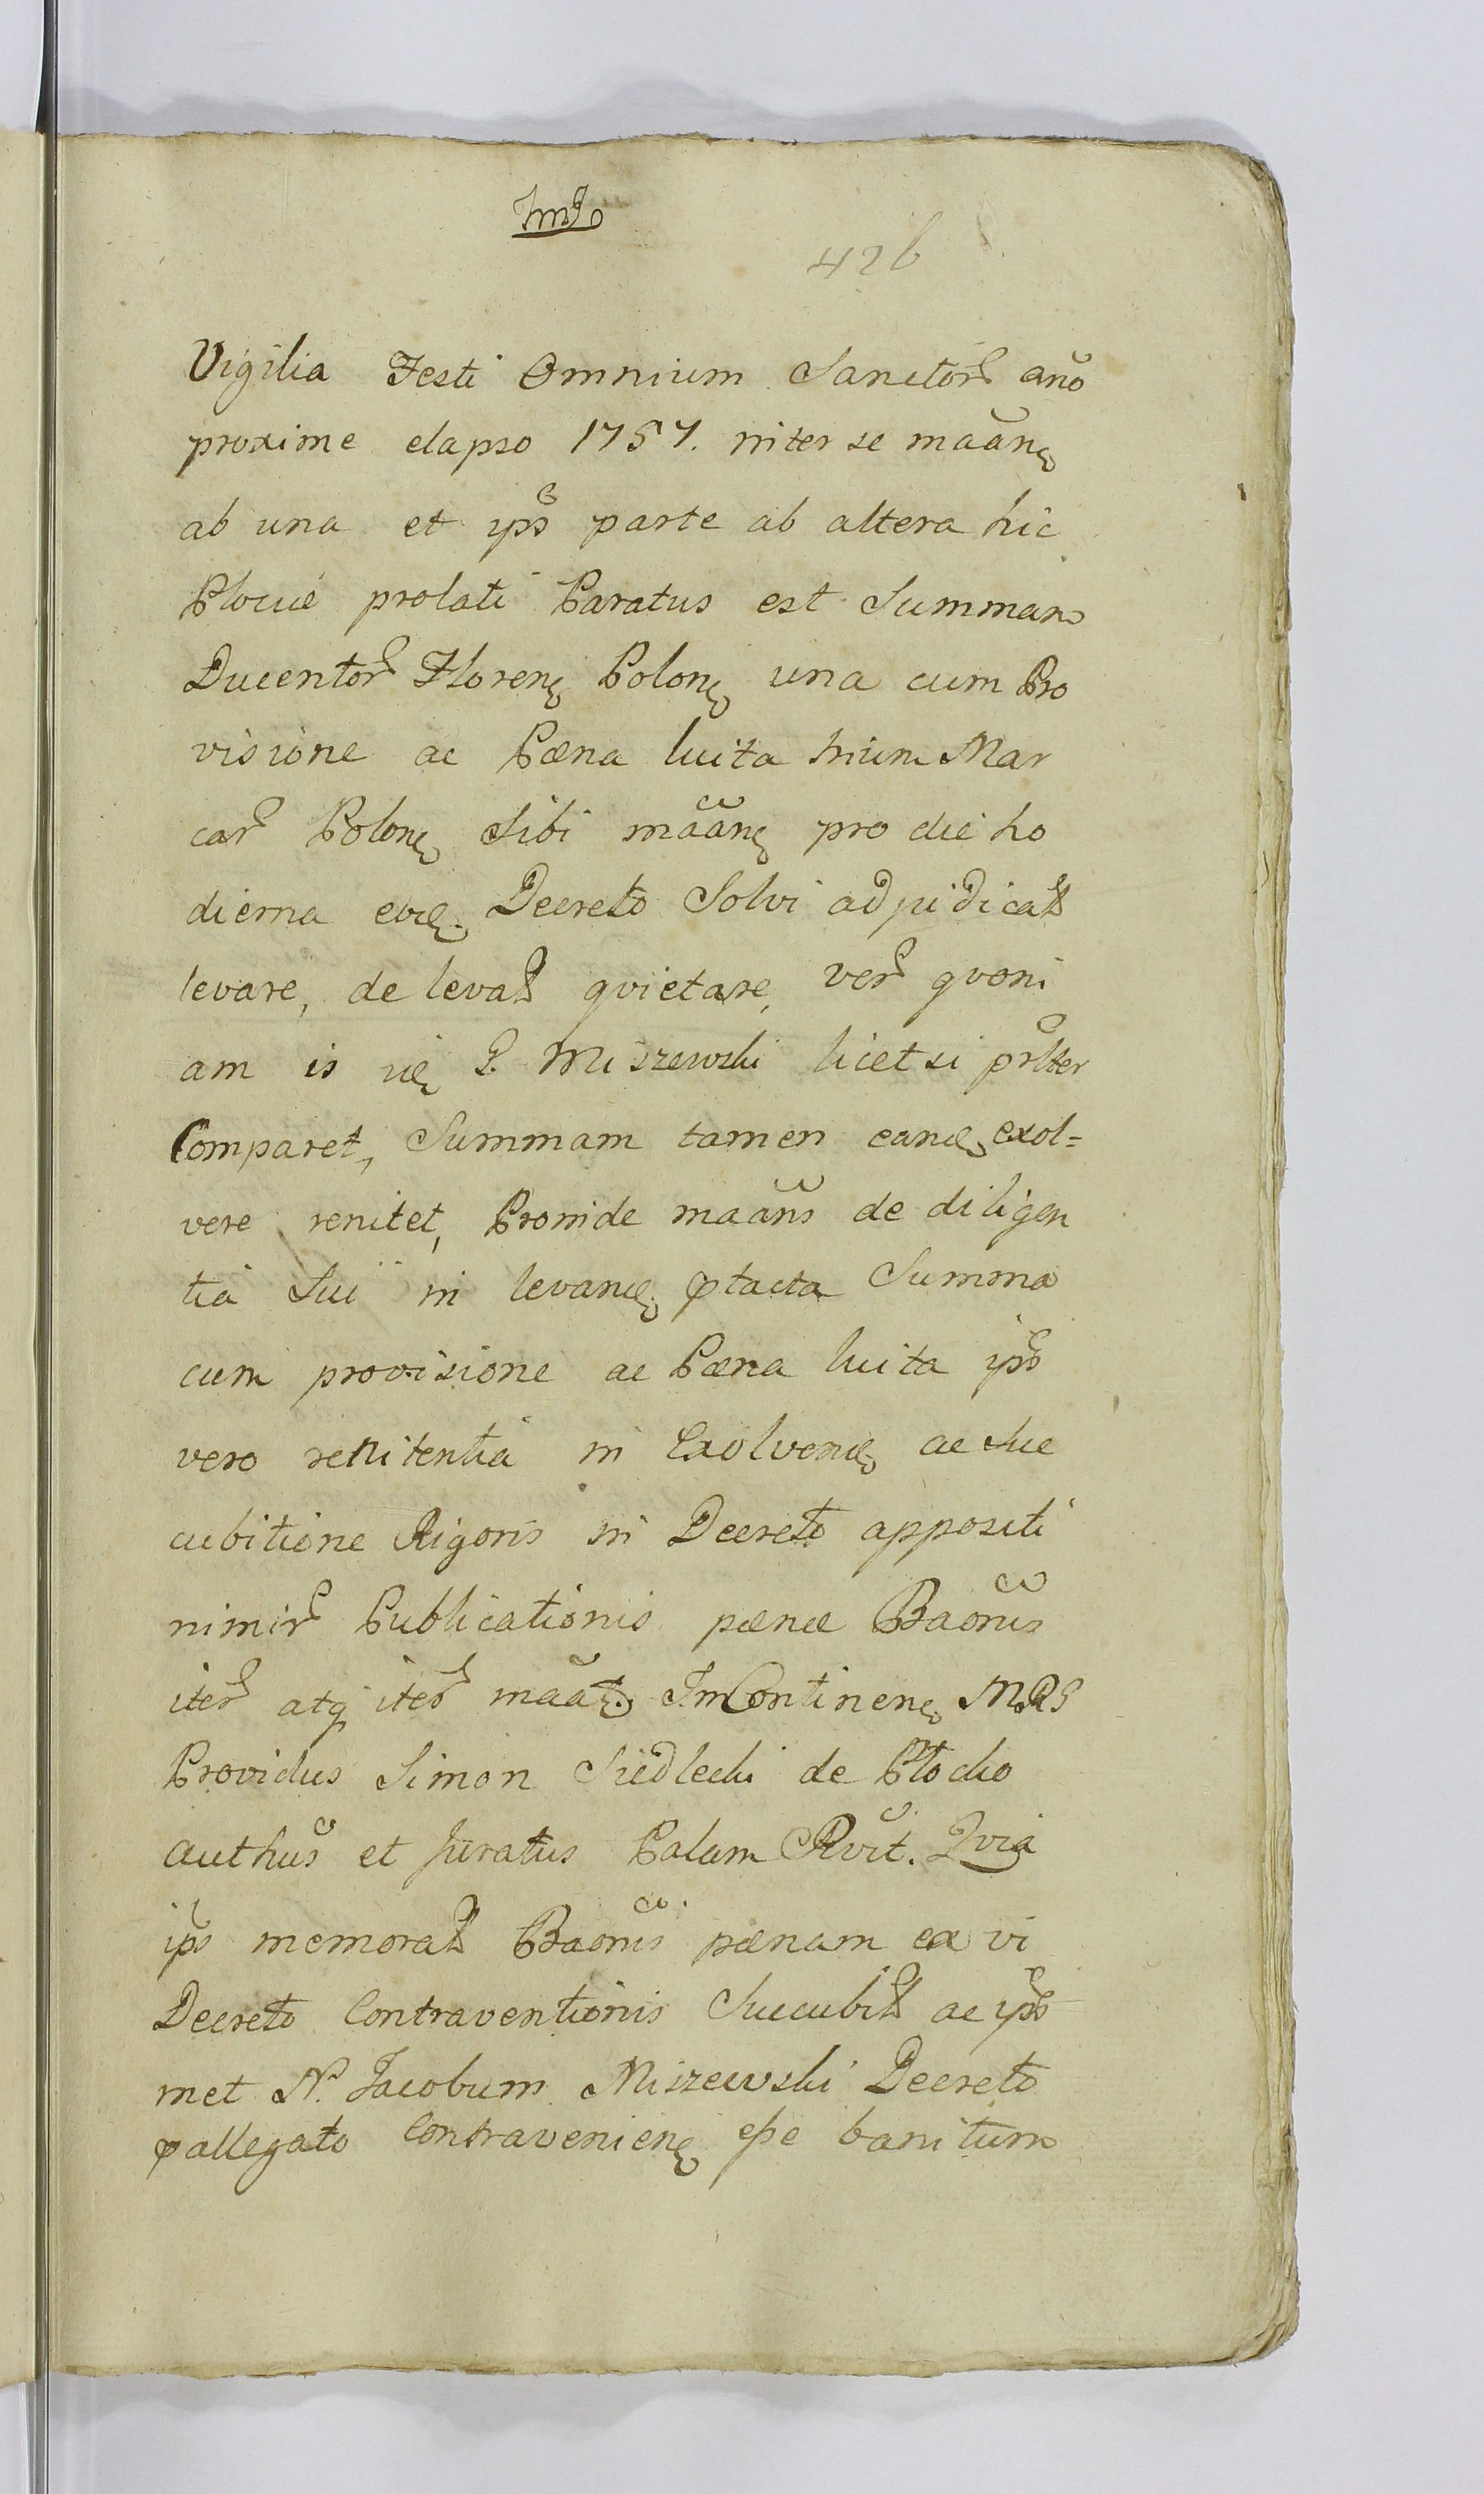 426
Vigilia Festi Omnium Sanctor̃ año
proxime elapso 1757. inter se maãn
ab una et ips̃ parte ab altera hic
Plociæ prolati Paratus est Summam
Ducentor̃ Floren Polon una cum Pro
visione ac Pæna luita trium Mar
car̃ Polon Sibi maãn pro die ho
dierna Decreto Solvi adjudicat̃
levare, de levat̃ qvietare, ver̃ qvoni
am is P. Miszewski licet si pr̃lter
Comparet, Summam tamen eand exol=
vere renitet, Proinde maãns de diligen
tia Sui in levand ptacta Summa
cum provisione ac Pæna luita ips̃
vero renitentia in Exolvend ac Suc
cubitione Rigoris in Decreto appositi
nimir̃ Publicationis pænæ Baõnis
iter̃ atq iter̃ maãt InContinen MRS
Providus Simon Siedlecki de Plocko
authũs et Juratus Palam Rvit̃. Qvia
ips̃ memorat̃ Baõnis pænam ex vi
Decreto Contraventionis Succubit̃ ac ips̃
met N. Jacobum Miszewski Decreto
pallegato Contravenien eſse banitum